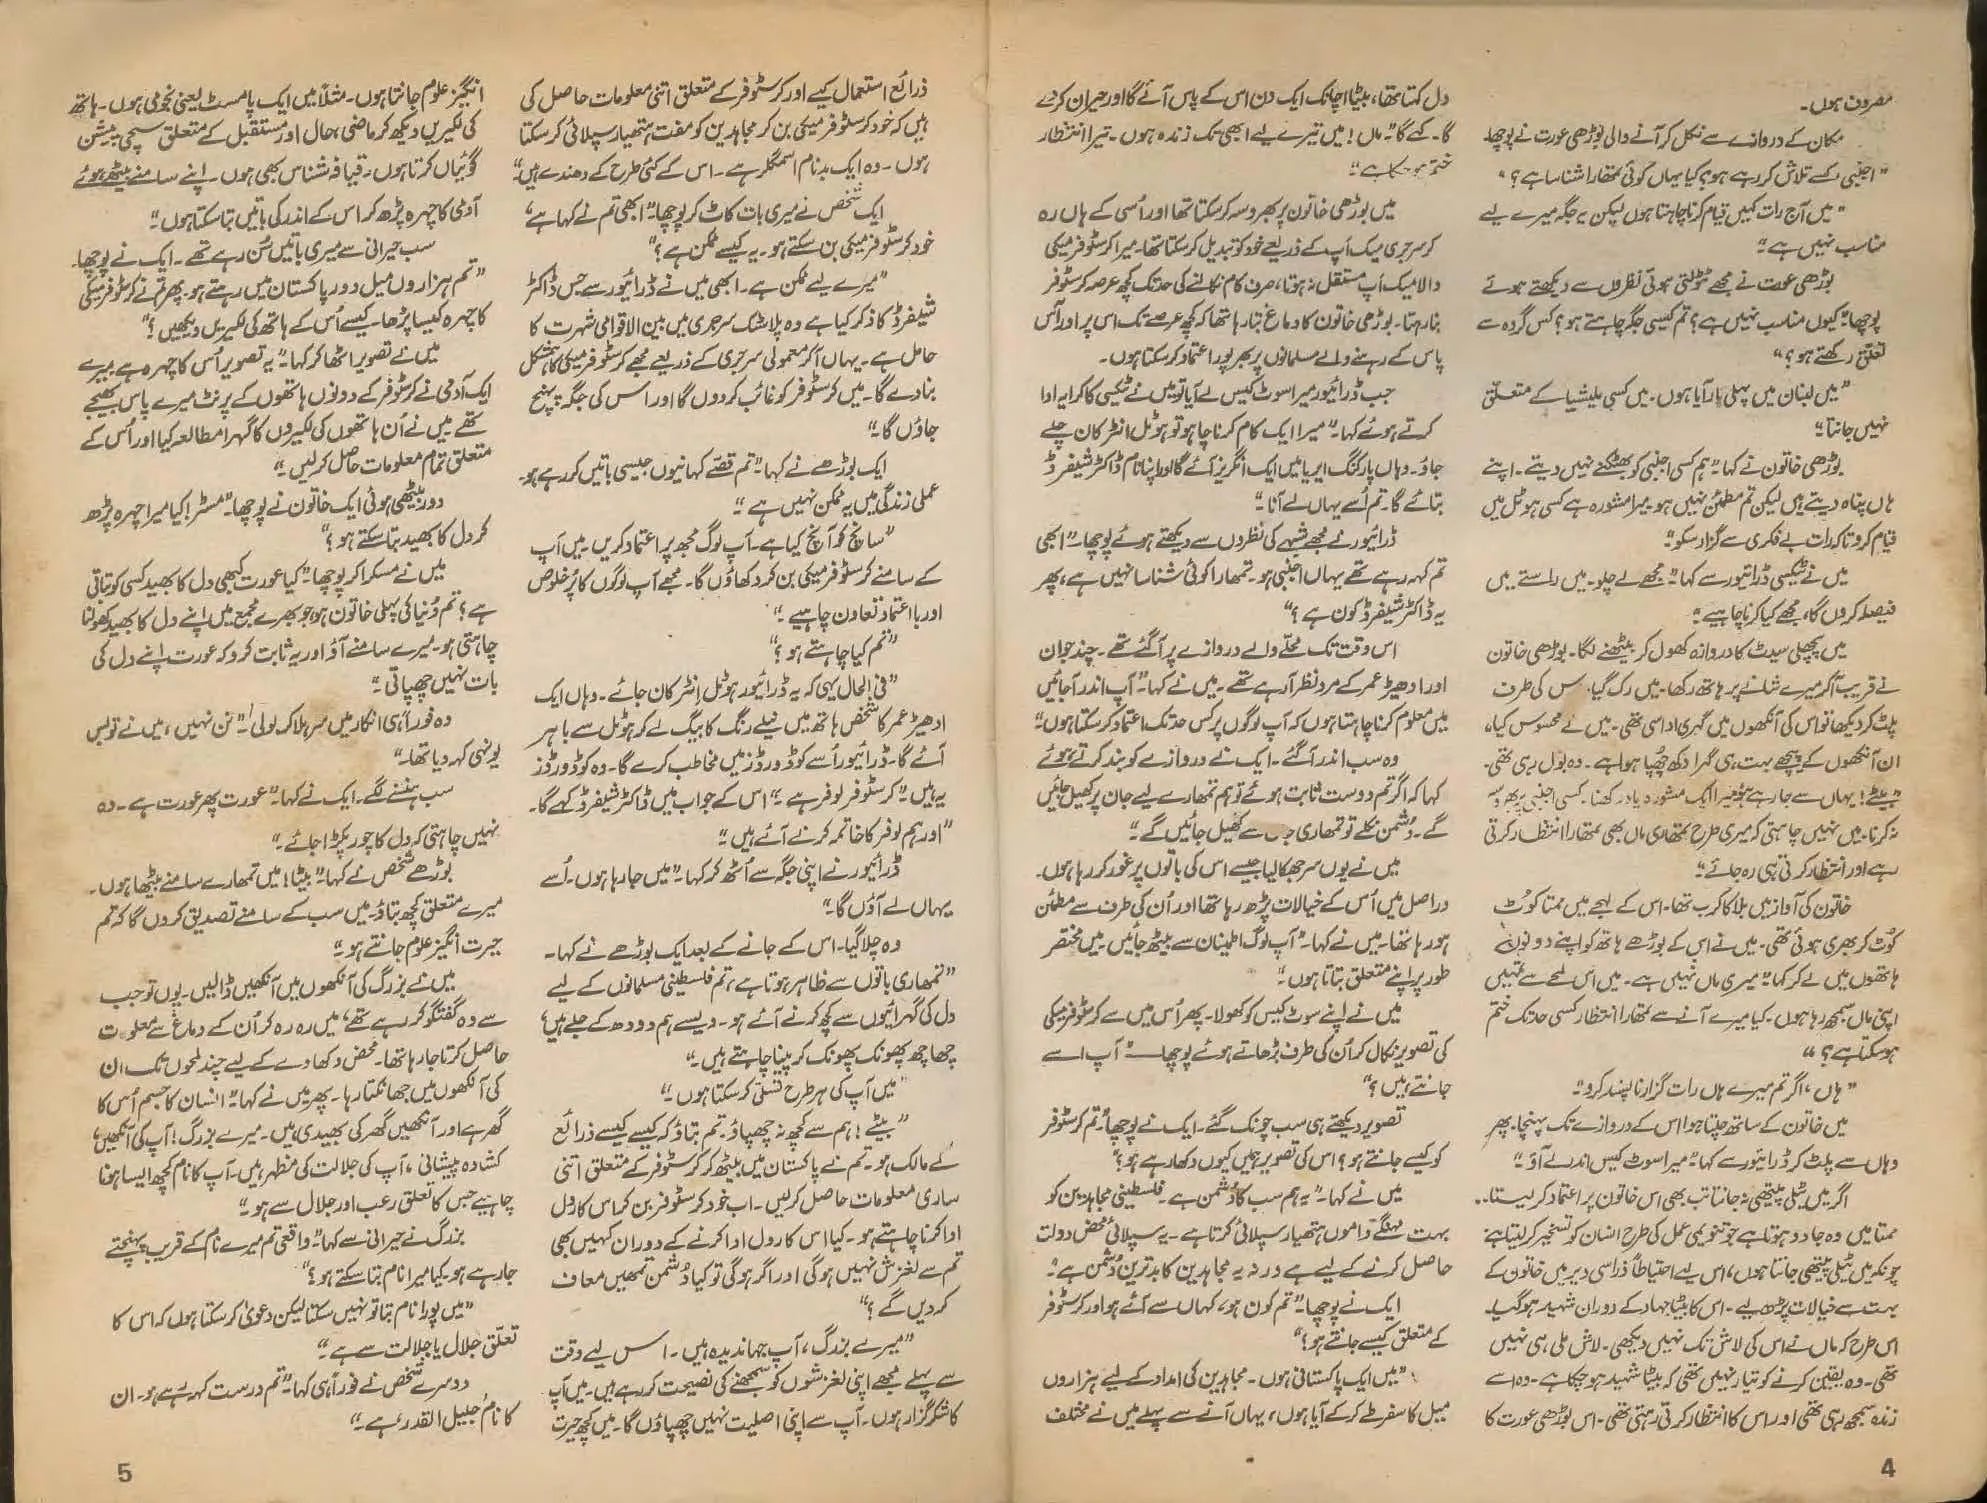 مصروف ہوں۔
مکان کے دروازے سے نکل کر آنے والی بوڑھی عورت نے پوچھا
"اجنبی! کسے تلاش کر رہے ہو؟ کیا یہاں کوئی تمھارا شناسا ہے؟"
"میں آج رات کہیں قیام کرنا چاہتا ہوں لیکن یہ جگہ میرے لیے
مناسب نہیں ہے"
بوڑھی عورت نے مجھے ٹٹولتی ہوئی نظروں سے دیکھتے ہوئے
پوچھا "کیوں مناسب نہیں ہے؟ تم کیسی جگہ چاہتے ہو؟ کس گروہ سے
تعلق رکھتے ہو؟"
"میں لبنان میں پہلی بار آیا ہوں۔ میں کسی ملیشیا کے متعلق
نہیں جانتا"
بوڑھی خاتون نے کہا "ہم کسی اجنبی کو بھٹکنے نہیں دیتے۔ اپنے
ہاں پناہ دیتے ہیں لیکن تم مطمئن نہیں ہو۔ میرا مشورہ ہے کسی ہوٹل میں
قیام کرو تاکہ رات بے فکری سے گزار سکو"
میں نے ٹیکسی ڈرائیور سے کہا "مجھے لے چلو۔ میں راستے میں
فیصلہ کروں گا، مجھے کیا کرنا چاہیے"
میں پچھلی سیٹ کا دروازہ کھول کر بیٹھنے لگا۔ بوڑھی خاتون
نے قریب آکر میرے شانے پر ہاتھ رکھا۔ میں رک گیا۔ اس کی طرف
پلٹ کر دیکھا تو اس کی آنکھوں میں گہری اداسی تھی۔ میں نے محسوس کیا،
ان آنکھوں کے پیچھے بہت ہی گہرا دکھ چھپا ہوا ہے۔ وہ بول رہی تھی۔
"بیٹے! یہاں سے جا رہے ہو، میرا ایک مشورہ یاد رکھنا۔ کسی اجنبی پر بھروسہ
نہ کرنا۔ میں نہیں چاہتی کہ میری طرح تمھاری ماں بھی تمھارا انتظار کرتی
رہے اور انتظار کرتی ہی رہ جائے"
خاتون کی آواز میں بلا کا کرب تھا۔ اس کے لہجے میں ممتا کوٹ
کوٹ کر بھری ہوئی تھی۔ میں نے اس کے بوڑھے ہاتھ کو اپنے دونوں
ہاتھوں میں لے کر کہا "میری ماں نہیں ہے۔ میں اس لمحے سے تمھیں
اپنی ماں سمجھ رہا ہوں۔ کیا میرے آنے سے تمھارا انتظار کسی حد تک ختم
ہو سکتا ہے؟"
"ہاں، اگر تم میرے ہاں رات گزارنا پسند کرو"
میں خاتون کے ساتھ چلتا ہوا اس کے دروازے تک پہنچا۔ پھر
وہاں سے پلٹ کر ڈرائیور سے کہا "میرا سوٹ کیس اندر لے آؤ"
اگر میں ٹیلی پیتھی نہ جانتا تب بھی اس خاتون پر اعتماد کر لیتا۔۔
ممتا میں وہ جادو ہوتا ہے جو تنویمی عمل کی طرح انسان کو تسخیر کر لیتا ہے
چونکہ میں ٹیلی پیتھی جانتا ہوں، اس لیے احتیاطاً ذرا سی دیر میں خاتون کے
بہت سے خیالات پڑھ لیے۔ اس کا بیٹا جہاد کے دوران شہید ہو گیا۔
اس طرح کہ ماں نے اس کی لاش تک نہیں دیکھی۔ لاش ملی ہی نہیں
تھی۔ وہ یقین کرنے کو تیار نہیں تھی کہ بیٹا شہید ہو چکا ہے۔ وہ اسے
زندہ سمجھ رہی تھی اور اس کا انتظار کرتی رہتی تھی۔ اس بوڑھی عورت کا
دل کہتا تھا، بیٹا اچانک ایک دن اس کے پاس آئے گا اور حیران کر دے
گا۔ کہے گا "ماں! میں تیرے لیے ابھی تک زندہ ہوں۔ تیرا انتظار
ختم ہو چکا ہے"
میں بوڑھی خاتون پر بھروسہ کر سکتا تھا اور اُسی کے ہاں رہ
کر سرجری میک اَپ کے ذریعے خود کو تبدیل کر سکتا تھا۔ میرا کرسٹوفر میکی
والا میک اَپ مستقل نہ ہوتا، صرف کام نکالنے کی حد تک کچھ عرصہ کرسٹوفر
بنا رہتا۔ بوڑھی خاتون کا دماغ بتا رہا تھا کہ کچھ عرصے تک اس پر اور آس
پاس کے رہنے والے مسلمانوں پر بھرپور اعتماد کر سکتا ہوں۔
جب ڈرائیور میرا سوٹ کیس لے آیا تو میں نے ٹیکسی کا کرایہ ادا
کرتے ہوئے کہا "میرا ایک کام کرنا چاہو تو ہوٹل انٹرکان چلے
جاؤ۔ وہاں پارکنگ ایریا میں ایک انگریز آئے گا اور اپنا نام ڈاکٹر شیفرڈ
بتائے گا۔ تم اُسے یہاں لے آنا"
ڈرائیور نے مجھے شبہے کی نظروں سے دیکھتے ہوئے پوچھا "ابھی
تم کہہ رہے تھے یہاں اجنبی ہو۔ تمھارا کوئی شناسا نہیں ہے، پھر
یہ ڈاکٹر شیفرڈ کون ہے؟"
اس وقت تک محلے والے دروازے پر آگئے تھے۔ چند جوان
اور ادھیڑ عمر کے مرد نظر آ رہے تھے۔ میں نے کہا "آپ اندر آجائیں
میں معلوم کرنا چاہتا ہوں کہ آپ لوگوں پر کس حد تک اعتماد کر سکتا ہوں"
وہ سب اندر آگئے۔ ایک نے دروازے کو بند کرتے ہوئے
کہا کہ اگر تم دوست ثابت ہوئے تو ہم تمھارے لیے جان پر کھیل جائیں
گے۔ دُشمن نکلے تو تمھاری جان سے کھیل جائیں گے"
میں نے یوں سر جھکا لیا جیسے اس کی باتوں پر غور کر رہا ہوں۔
دراصل میں اُس کے خیالات پڑھ رہا تھا اور اُن کی طرف سے مطمئن
ہو رہا تھا۔ میں نے کہا "آپ لوگ اطمینان سے بیٹھ جائیں۔ میں مختصر
طور پر اپنے متعلق بتاتا ہوں"
میں نے اپنے سوٹ کیس کو کھولا۔ پھر اُس میں سے کرسٹوفر میکی
کی تصویر نکال کر اُن کی طرف بڑھاتے ہوئے پوچھا۔ "آپ اسے
جانتے ہیں؟"
تصویر دیکھتے ہی سب چونک گئے۔ ایک نے پوچھا "تم کرسٹوفر
کو کیسے جانتے ہو؟ اس کی تصویر ہمیں کیوں دکھا رہے ہو؟"
میں نے کہا "یہ ہم سب کا دُشمن ہے۔ فلسطینی مجاہدین کو
بہت مہنگے داموں ہتھیار سپلائی کرتا ہے۔ یہ سپلائی محض دولت
حاصل کرنے کے لیے ہے ورنہ یہ مجاہدین کا بدترین دُشمن ہے"
ایک نے پوچھا "تم کون ہو، کہاں سے آئے ہو اور کرسٹوفر
کے متعلق کیسے جانتے ہو؟"
"میں ایک پاکستانی ہوں۔ مجاہدین کی امداد کے لیے ہزاروں
میل کا سفر طے کر کے آیا ہوں، یہاں آنے سے پہلے میں نے مختلف
4
ذرائع استعمال کیے اور کرسٹوفر کے متعلق اتنی معلومات حاصل کی
ہیں کہ خود کرسٹوفر میکی بن کر مجاہدین کو مفت ہتھیار سپلائی کر سکتا
ہوں۔ وہ ایک بدنام اسمگلر ہے۔ اس کے کئی طرح کے دھندے ہیں"
ایک شخص نے میری بات کاٹ کر پوچھا "ابھی تم نے کہا ہے،
خود کرسٹوفر میکی بن سکتے ہو۔ یہ کیسے ممکن ہے؟"
"میرے لیے ممکن ہے۔ ابھی میں نے ڈرائیور سے جس ڈاکٹر
شیفرڈ کا ذکر کیا ہے وہ پلاسٹک سرجری میں بین الاقوامی شہرت کا
حامل ہے۔ یہاں آکر معمولی سرجری کے ذریعے مجھے کرسٹوفر میکی کا ہم شکل
بنا دے گا۔ میں کرسٹوفر کو غائب کر دوں گا اور اس کی جگہ پہنچ
جاؤں گا"
ایک بوڑھے نے کہا "تم قصے کہانیوں جیسی باتیں کر رہے ہو۔
عملی زندگی میں یہ ممکن نہیں ہے"
"سانچ کو آنچ کیا ہے۔ آپ لوگ مجھ پر اعتماد کریں۔ میں آپ
کے سامنے کرسٹوفر میکی بن کر دکھاؤں گا۔ مجھے آپ لوگوں کا پُرخلوص
اور بااعتماد تعاون چاہیے"
"تم کیا چاہتے ہو؟"
"فی الحال یہی کہ یہ ڈرائیور ہوٹل انٹرکان جائے۔ وہاں ایک
ادھیڑ عمر کا شخص ہاتھ میں نیلے رنگ کا بیگ لے کر ہوٹل سے باہر
آئے گا۔ ڈرائیور اُسے کوڈ ورڈز میں مخاطب کرے گا۔ وہ کوڈ ورڈز
یہ ہیں "کرسٹوفر لوفر ہے" اس کے جواب میں ڈاکٹر شیفرڈ کہے گا۔
"اور ہم لوفر کا خاتمہ کرنے آئے ہیں"
ڈرائیور نے اپنی جگہ سے اُٹھ کر کہا "میں جا رہا ہوں۔ اُسے
یہاں لے آؤں گا"
وہ چلا گیا۔ اس کے جانے کے بعد ایک بوڑھے نے کہا۔
"تمھاری باتوں سے ظاہر ہوتا ہے، تم فلسطینی مسلمانوں کے لیے
دل کی گہرائیوں سے کچھ کرنے آئے ہو۔ ویسے ہم دودھ کے جلے ہیں،
چھاچھ پھونک پھونک کر پینا چاہتے ہیں"
"میں آپ کی ہر طرح تسلی کر سکتا ہوں"
"بیٹے! ہم سے کچھ نہ چھپاؤ۔ تم بتاؤ کہ کیسے کیسے ذرائع
کے مالک ہو۔ تم نے پاکستان میں بیٹھ کر کرسٹوفر کے متعلق اتنی
ساری معلومات حاصل کر لیں۔ اب خود کرسٹوفر بن کر اس کا رول
ادا کرنا چاہتے ہو۔ کیا اس کا رول ادا کرنے کے دوران کہیں بھی
تم سے لغزش نہیں ہوگی اور اگر ہوگی تو کیا دُشمن تمھیں معاف
کر دیں گے؟"
"میرے بزرگ، آپ جہاندیدہ ہیں۔ اس لیے وقت
سے پہلے مجھے اپنی لغزشوں کو سمجھنے کی نصیحت کر رہے ہیں۔ میں آپ
کا شکرگزار ہوں۔ آپ سے اپنی اصلیت نہیں چھپاؤں گا۔ میں کچھ حیرت
انگیز علوم جانتا ہوں۔ مثلاً میں ایک پامسٹ یعنی نجومی ہوں۔ ہاتھ
کی لکیریں دیکھ کر ماضی، حال اور مستقبل کے متعلق سچی پیشن
گوئیاں کرتا ہوں۔ قیافہ شناس بھی ہوں۔ اپنے سامنے بیٹھے ہوئے
آدمی کا چہرہ پڑھ کر اس کے اندر کی باتیں بتا سکتا ہوں"
سب حیرانی سے میری باتیں سُن رہے تھے۔ ایک نے پوچھا۔
"تم ہزاروں میل دور پاکستان میں رہتے ہو۔ پھر تم نے کرسٹوفر میکی
کا چہرہ کیسا پڑھا۔ کیسے اُس کے ہاتھ کی لکیریں دیکھیں؟"
میں نے تصویر اٹھا کر کہا "یہ تصویر اُس کا چہرہ ہے۔ میرے
ایک آدمی نے کرسٹوفر کے دونوں ہاتھوں کے پرنٹ میرے پاس بھیجے
تھے میں نے اُن ہاتھوں کی لکیروں کا گہرا مطالعہ کیا اور اُس کے
متعلق تمام معلومات حاصل کر لیں"
دور بیٹھی ہوئی ایک خاتون نے پوچھا "مسٹر! کیا میرا چہرہ پڑھ
کر دل کا بھید بتا سکتے ہو؟"
میں نے مسکرا کر پوچھا "کیا عورت کبھی دل کا بھید کسی کو بتاتی
ہے؟ تم دُنیا کی پہلی خاتون ہو، جو بھرے مجمع میں اپنے دل کا بھید کھولنا
چاہتی ہو۔ میرے سامنے آؤ اور یہ ثابت کر دو کہ عورت اپنے دل کی
بات نہیں چھپاتی"
وہ فوراً ہی انکار میں سر ہلا کر بولی "نن نہیں، میں نے تو بس
یونہی کہہ دیا تھا"
سب ہنسنے لگے۔ ایک نے کہا "عورت پھر عورت ہے۔ وہ
نہیں چاہتی کہ دل کا چور پکڑا جائے"
بوڑھے شخص نے کہا "بیٹا! میں تمھارے سامنے بیٹھا ہوں۔
میرے متعلق کچھ بتاؤ۔ میں سب کے سامنے تصدیق کروں گا کہ تم
حیرت انگیز علوم جانتے ہو"
میں نے بزرگ کی آنکھوں میں آنکھیں ڈالیں۔ یوں تو جب
سے وہ گفتگو کر رہے تھے، میں رہ رہ کر اُن کے دماغ سے معلومات
حاصل کرتا جا رہا تھا۔ محض دکھاوے کے لیے چند لمحوں تک ان
کی آنکھوں میں جھانکتا رہا۔ پھر میں نے کہا "انسان کا جسم اُس کا
گھر ہے اور آنکھیں گھر کی بھیدی ہیں۔ میرے بزرگ! آپ کی آنکھیں،
کشادہ پیشانی، آپ کی جلالت کی مظہر ہیں۔ آپ کا نام کچھ ایسا ہونا
چاہیے جس کا تعلق رعب اور جلال سے ہو"
بزرگ نے حیرانی سے کہا "واقعی تم میرے نام کے قریب پہنچتے
جا رہے ہو۔ کیا میرا نام بتا سکتے ہو؟"
"میں پورا نام بتا تو نہیں سکتا لیکن دعویٰ کر سکتا ہوں کہ اس کا
تعلّق جلال یا جلالت سے ہے"
دوسرے شخص نے فوراً ہی کہا "تم درست کہہ رہے ہو۔ ان
کا نام جلیل القدر ہے"
5